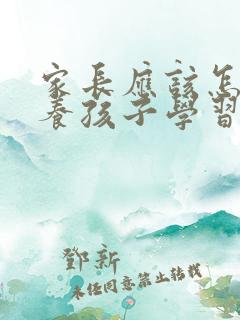 家長應該怎
養孩子學習
鄧新
未经同意禁止转载